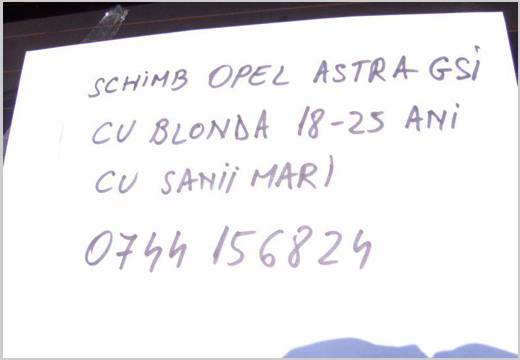 SCHIMB OPEL ASTRA GSI
CU BLONDA 18-25 ANI
CU SANII MARI
0744 156824